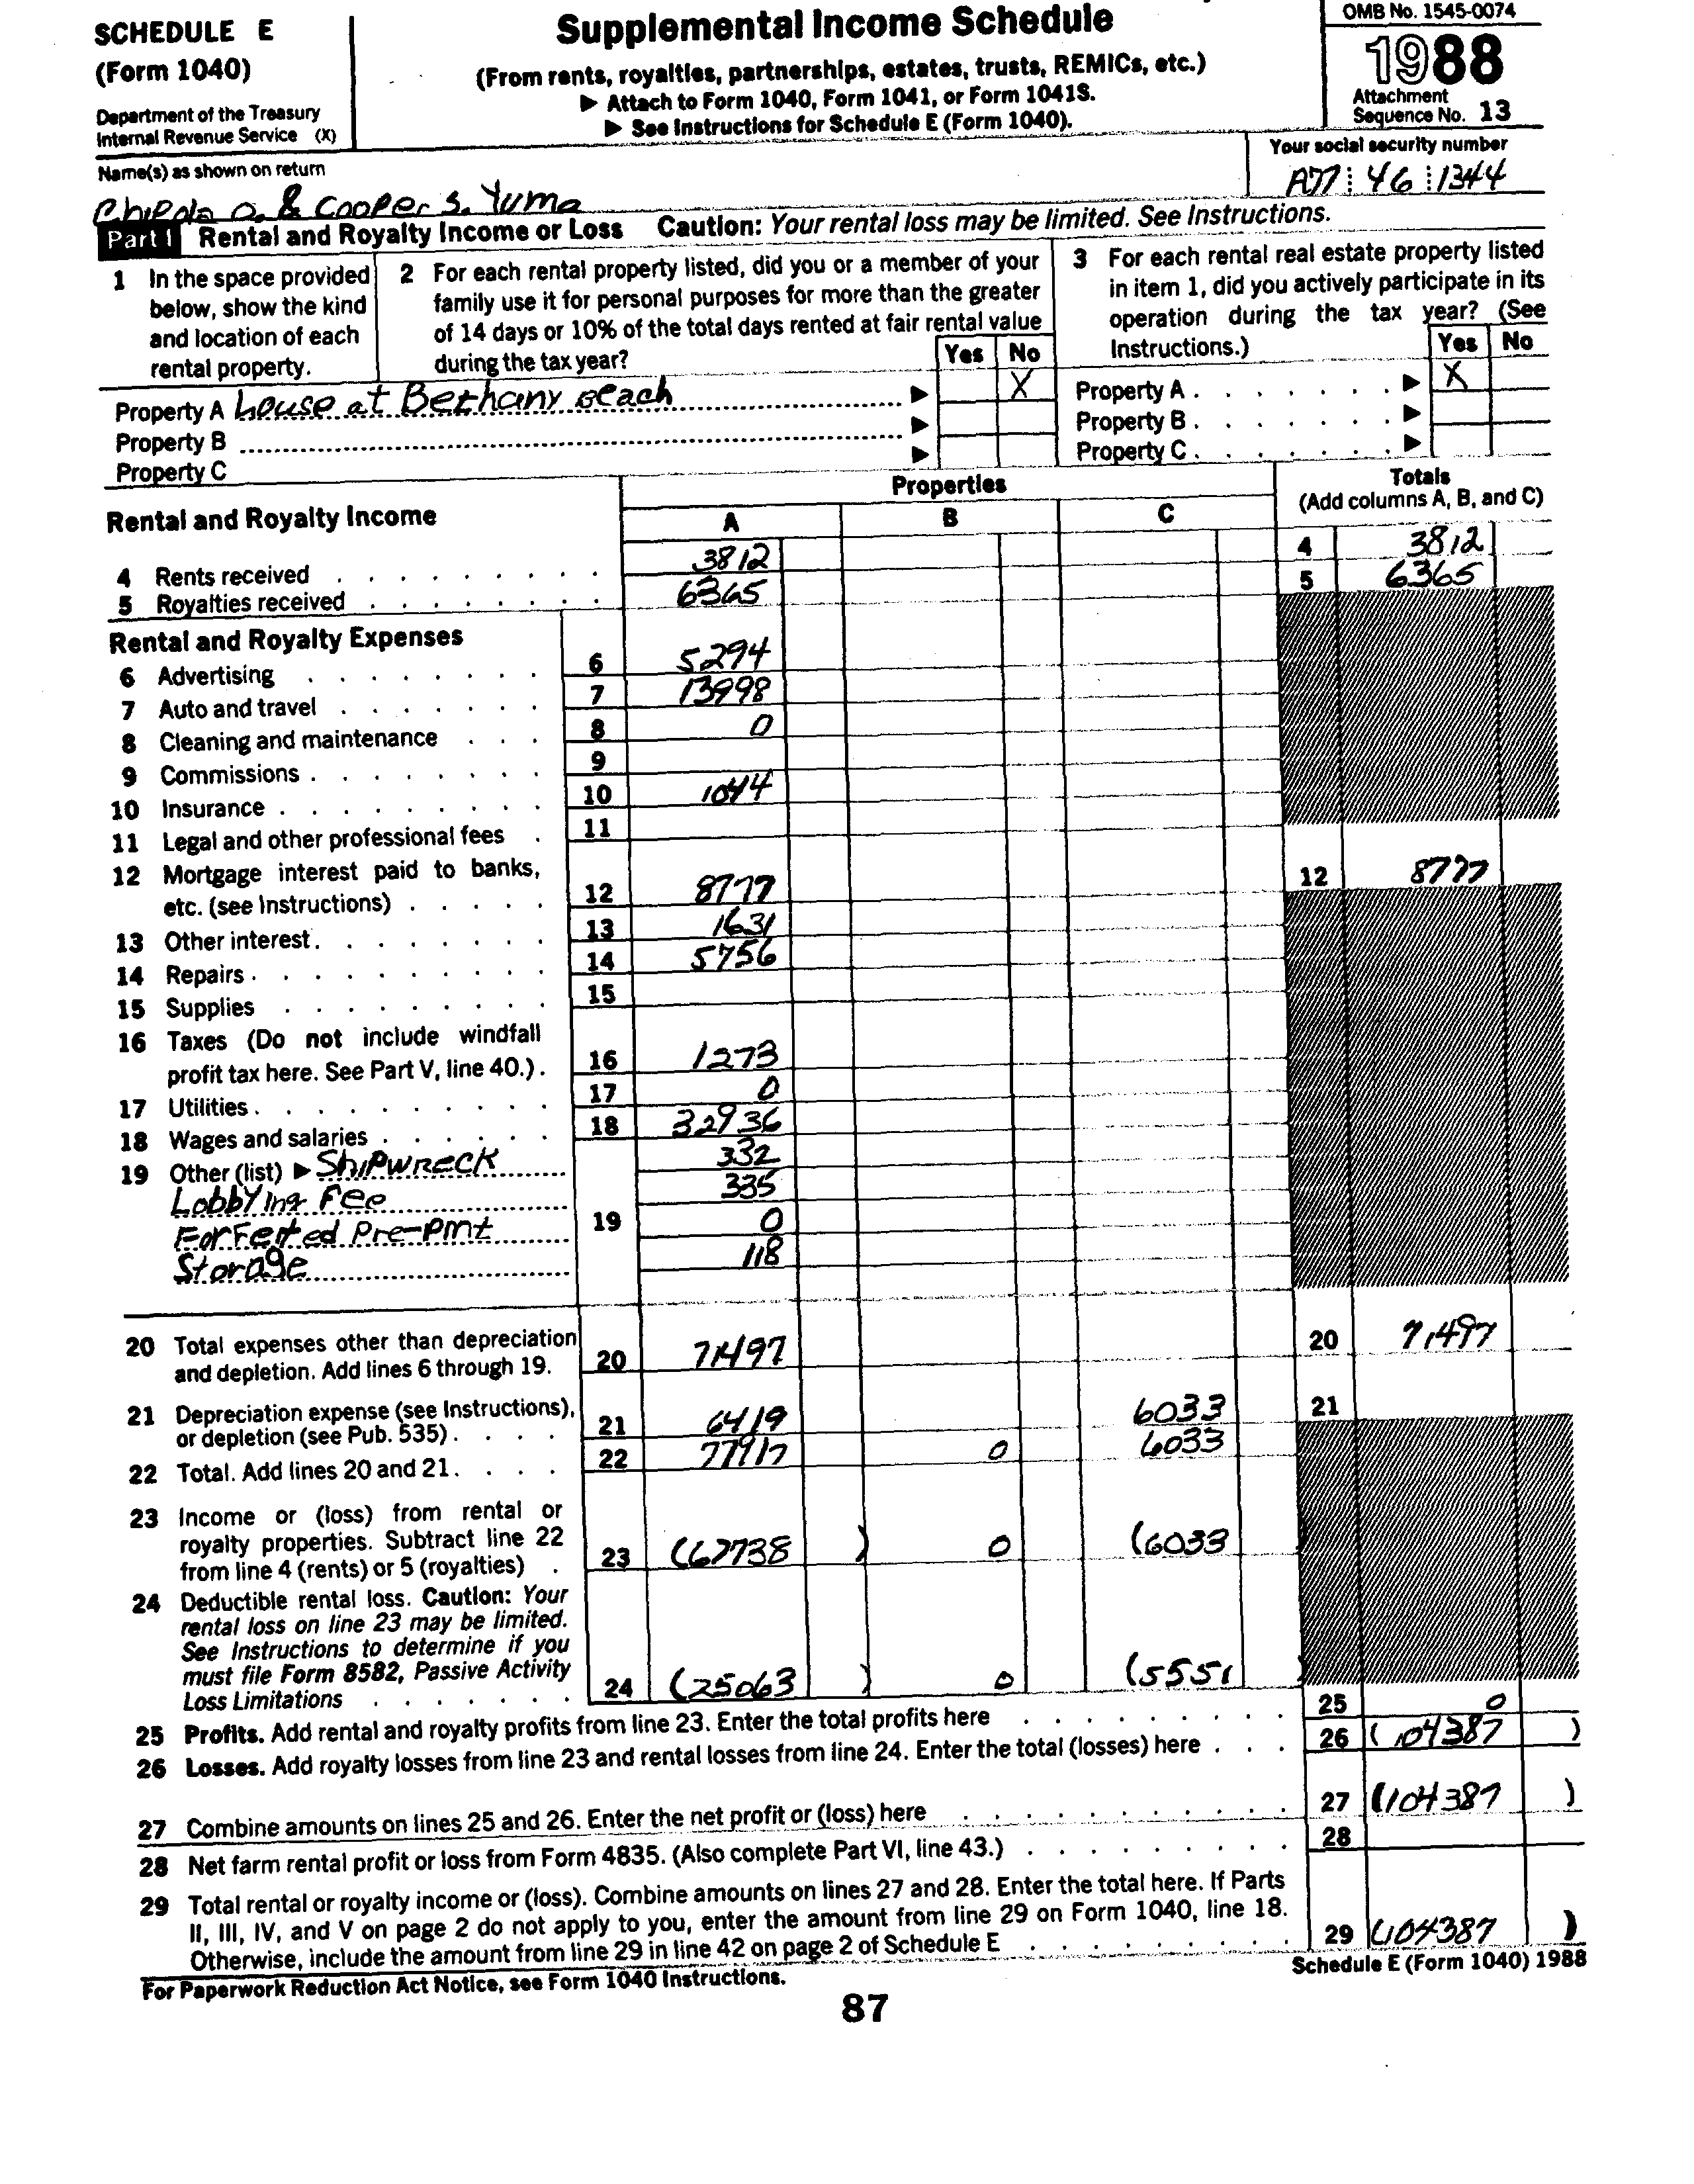 SCHEDULE E
(Form 1040)
Department of the Treasury
Internal Revenue Service (X)
Supplemental Income Schedule
(From rents, royalties, partnerships, estates, trusts, REMICs, etc.)
▶ Attach to Form 1040, Form 1041, or Form 1041S.
▶ See Instructions for Schedule E (Form 1040).
OMB No. 1545-0074
1988
Attachment
Sequence No. 13
Name(s) as shown on return
& Cooper S. Yuma
Your social security number
46 1344
Part I Rental and Royalty Income or Loss Caution: Your rental loss may be limited. See Instructions.
1 In the space provided
below, show the kind
and location of each
rental property.
2 For each rental property listed, did you or a member of your
family use it for personal purposes for more than the greater
of 14 days or 10% of the total days rented at fair rental value
during the tax year?
Yes No
3 For each rental real estate property listed
in item 1, did you actively participate in its
operation during the tax year? (See
Instructions.)
Yes No
Property A house at Bethany Beach ▶ X
Property B ▶
Property C ▶
Property A ▶ X
Property B ▶
Property C ▶
Rental and Royalty Income
Properties
A B C
Totals
(Add columns A, B, and C)
4 Rents received 3812 4 3812
5 Royalties received 6365 5 6365
Rental and Royalty Expenses
6 Advertising 6 5294
7 Auto and travel 7 13998
8 Cleaning and maintenance 8 0
9 Commissions 9
10 Insurance 10 1044
11 Legal and other professional fees 11
12 Mortgage interest paid to banks,
etc. (see Instructions) 12 8777 12 8777
13 Other interest 13 1631
14 Repairs 14 5756
15 Supplies 15
16 Taxes (Do not include windfall
profit tax here. See Part V, line 40.) 16 1273
17 Utilities 17 0
18 Wages and salaries 18 32936
19 Other (list) ▶ Shipwreck 332
Lobbying Fee 335
Forfeited Pre-pmt 19 0
Storage 118
20 Total expenses other than depreciation
and depletion. Add lines 6 through 19. 20 71497 20 71497
21 Depreciation expense (see Instructions),
or depletion (see Pub. 535) 21 6419 6033 21
22 Total. Add lines 20 and 21 22 77917 0 6033
23 Income or (loss) from rental or
royalty properties. Subtract line 22
from line 4 (rents) or 5 (royalties) 23 (67738 ) 0 (6033 )
24 Deductible rental loss. Caution: Your
rental loss on line 23 may be limited.
See Instructions to determine if you
must file Form 8582, Passive Activity
Loss Limitations 24 (25063 ) 0 (5551 )
25 Profits. Add rental and royalty profits from line 23. Enter the total profits here 25 0
26 Losses. Add royalty losses from line 23 and rental losses from line 24. Enter the total (losses) here 26 ( 104387 )
27 Combine amounts on lines 25 and 26. Enter the net profit or (loss) here 27 (104387 )
28 Net farm rental profit or loss from Form 4835. (Also complete Part VI, line 43.) 28
29 Total rental or royalty income or (loss). Combine amounts on lines 27 and 28. Enter the total here. If Parts
II, III, IV, and V on page 2 do not apply to you, enter the amount from line 29 on Form 1040, line 18.
Otherwise, include the amount from line 29 in line 42 on page 2 of Schedule E 29 (104387 )
For Paperwork Reduction Act Notice, see Form 1040 Instructions.
Schedule E (Form 1040) 1988
87